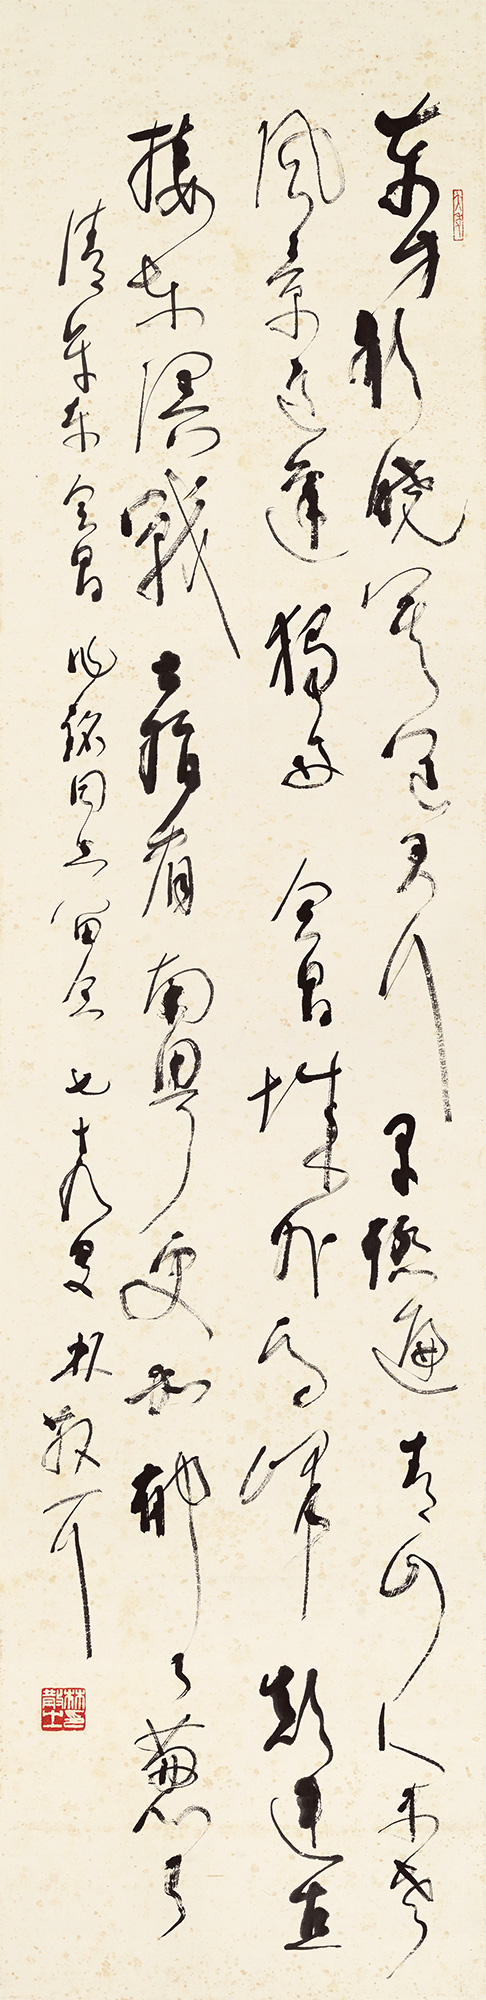 东方欲晓莫道君行早踏遍青山人未老
风景这边独好会昌城外高峰颠连直
接东溟战士指看南粤更加郁々葱々
清平乐会昌 兆铭同志留念 七十叟 林散耳
林散之印